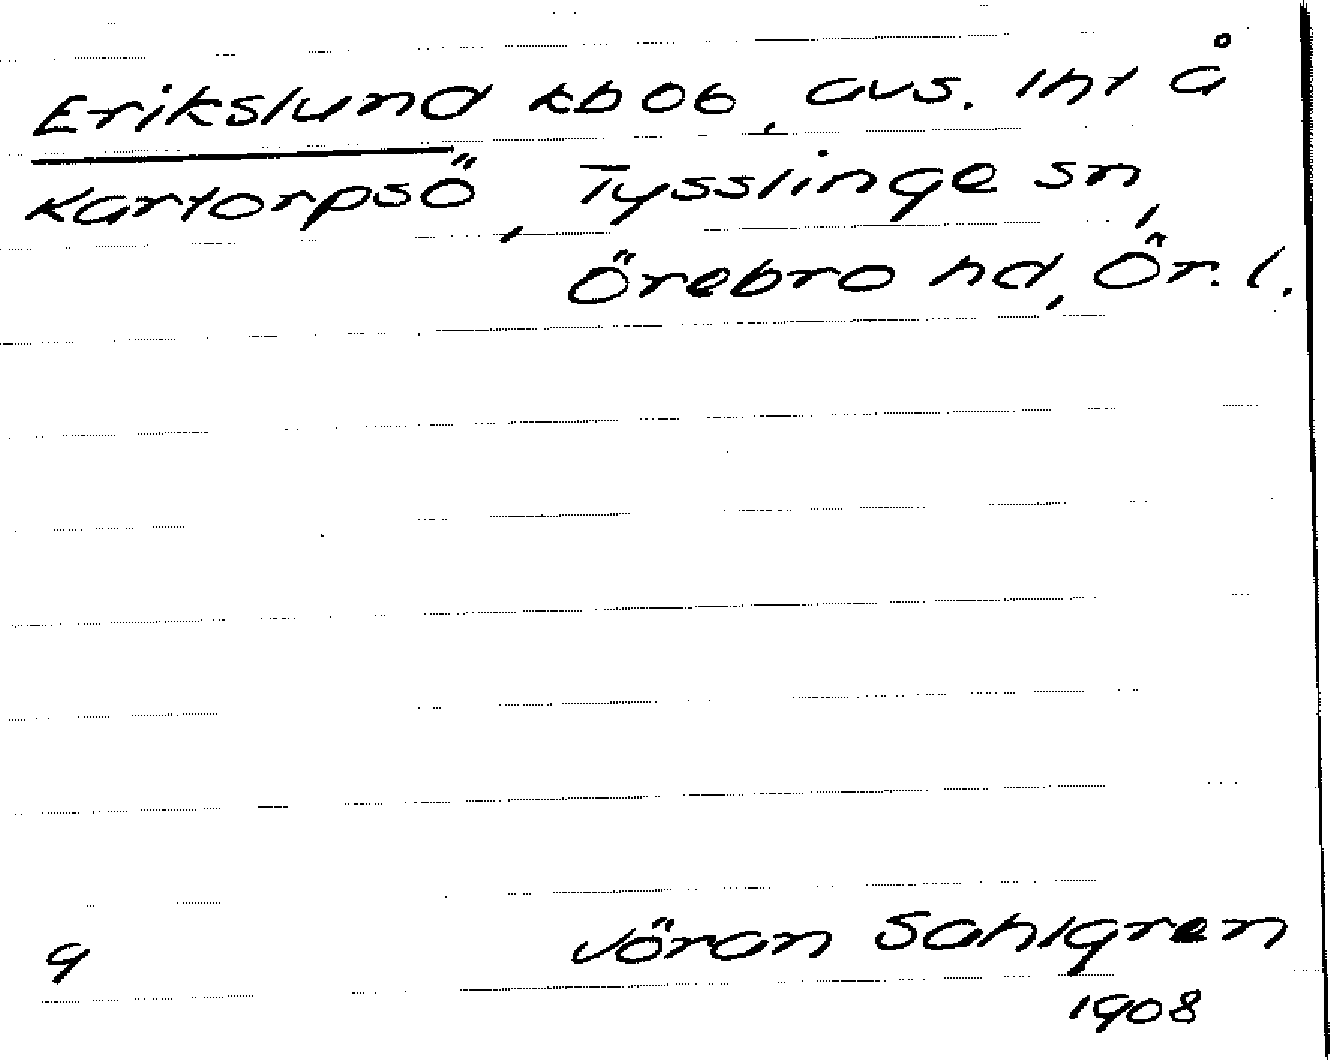 Erikslund kb 06, avs. lht å
Kartorpsö, Tysslinge sn,
Örebro hd, Ör. l.
9
Jöran Sahlgren
1908